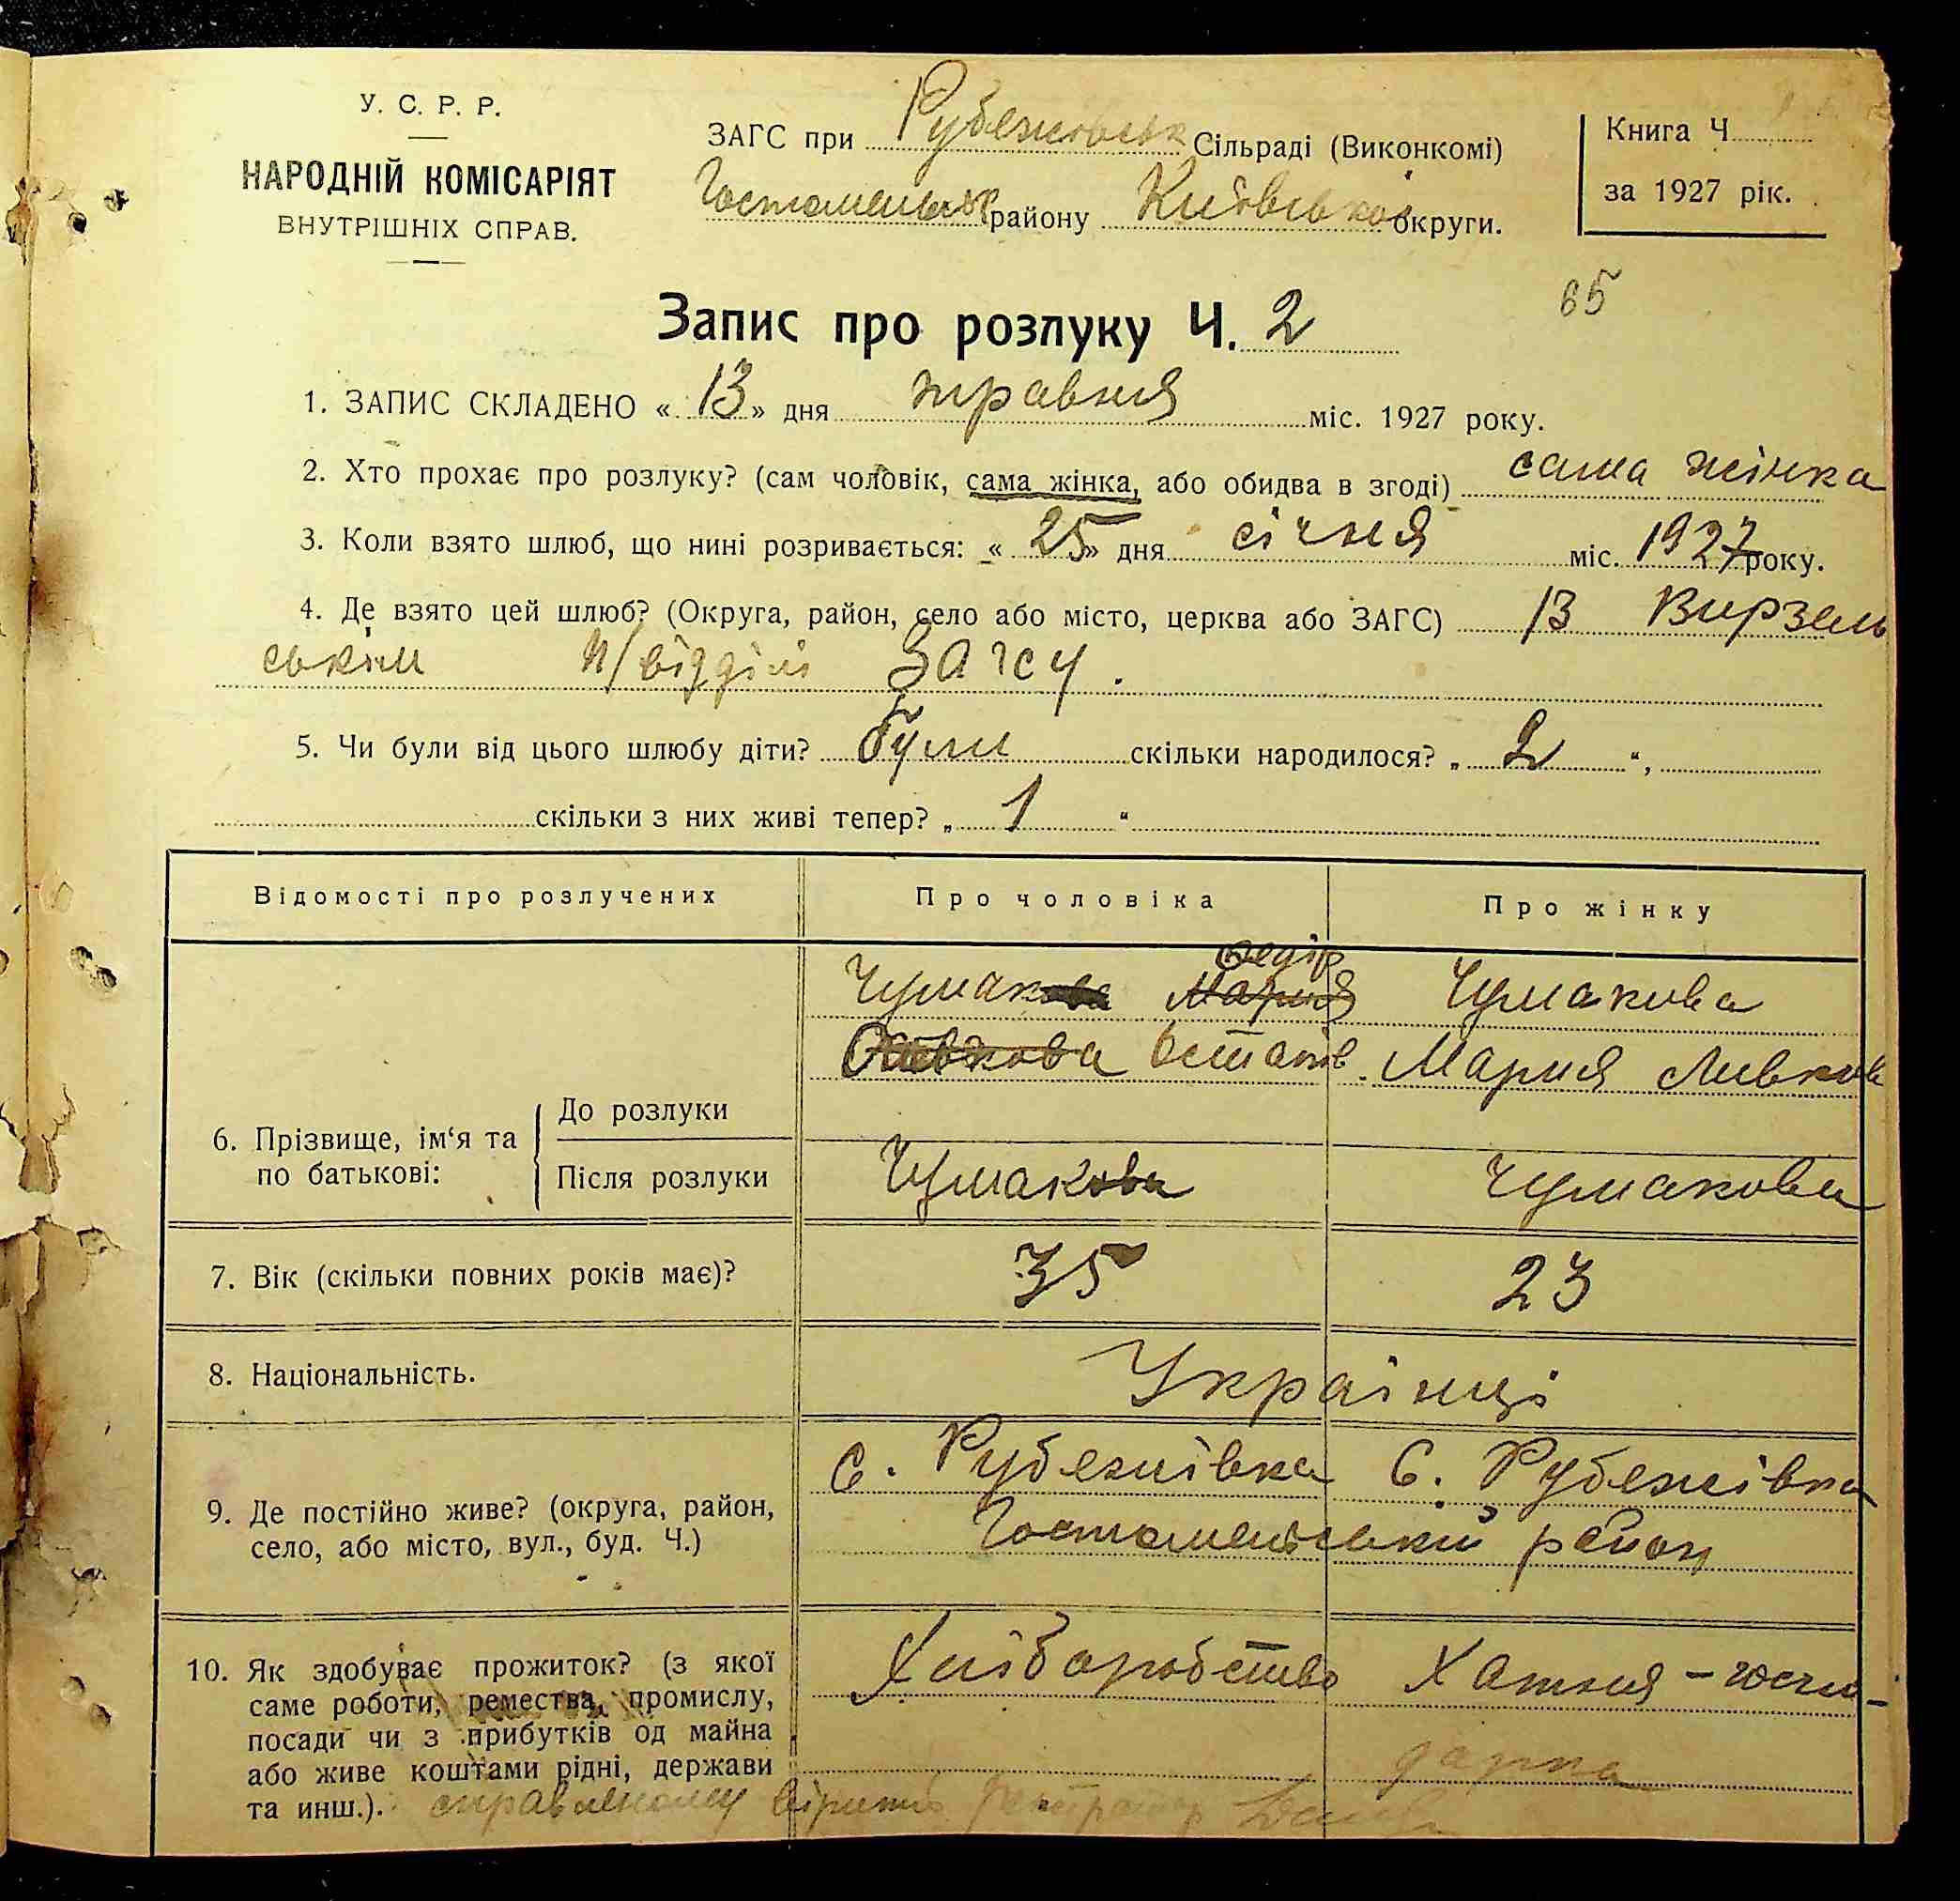 У. С. Р. Р.
НАРОДНІЙ КОМІСАРІЯТ
ВНУТРІШНІХ СПРАВ.
ЗАГС при Рубежовськ Сільраді (Виконкомі)
Гостомельськ району Київської округи.
Книга Ч.
за 1927 рік.
65
Запис про розлуку Ч. 2
1. ЗАПИС СКЛАДЕНО « 13 » дня травня міс. 1927 року.
2. Хто прохає про розлуку? (сам чоловік, сама жінка, або обидва в згоді) сама жінка
3. Коли взято шлюб, що нині розривається: « 25 » дня січня міс. 1927 року.
4. Де взято цей шлюб? (Округа, район, село або місто, церква або ЗАГС) В Вирзель
ськім п/відділі Загсу.
5. Чи були від цього шлюбу діти? Були скільки народилося? „ 2 “,
скільки з них живі тепер? „ 1 “
Відомості про розлучених
Про чоловіка
Про жінку
6. Прізвище, ім‘я та по батькові:
До розлуки
Федір
Чумакова Мария
Остапов.
Чумакова
Мария Ливков
Після розлуки
Чумакова
Чумакова
7. Вік (скільки повних років має)?
35
23
8. Національність.
Українці
9. Де постійно живе? (округа, район,
село, або місто, вул., буд. Ч.)
с. Рубежівка
с. Рубежівка
Гостомельський район
10. Як здобуває прожиток? (з якої
саме роботи, ремества, промислу,
посади чи з прибутків од майна
або живе коштами рідні, держави
та инш.).
Хліборобство
Хатня-госпо-
дарка
справленому вірить